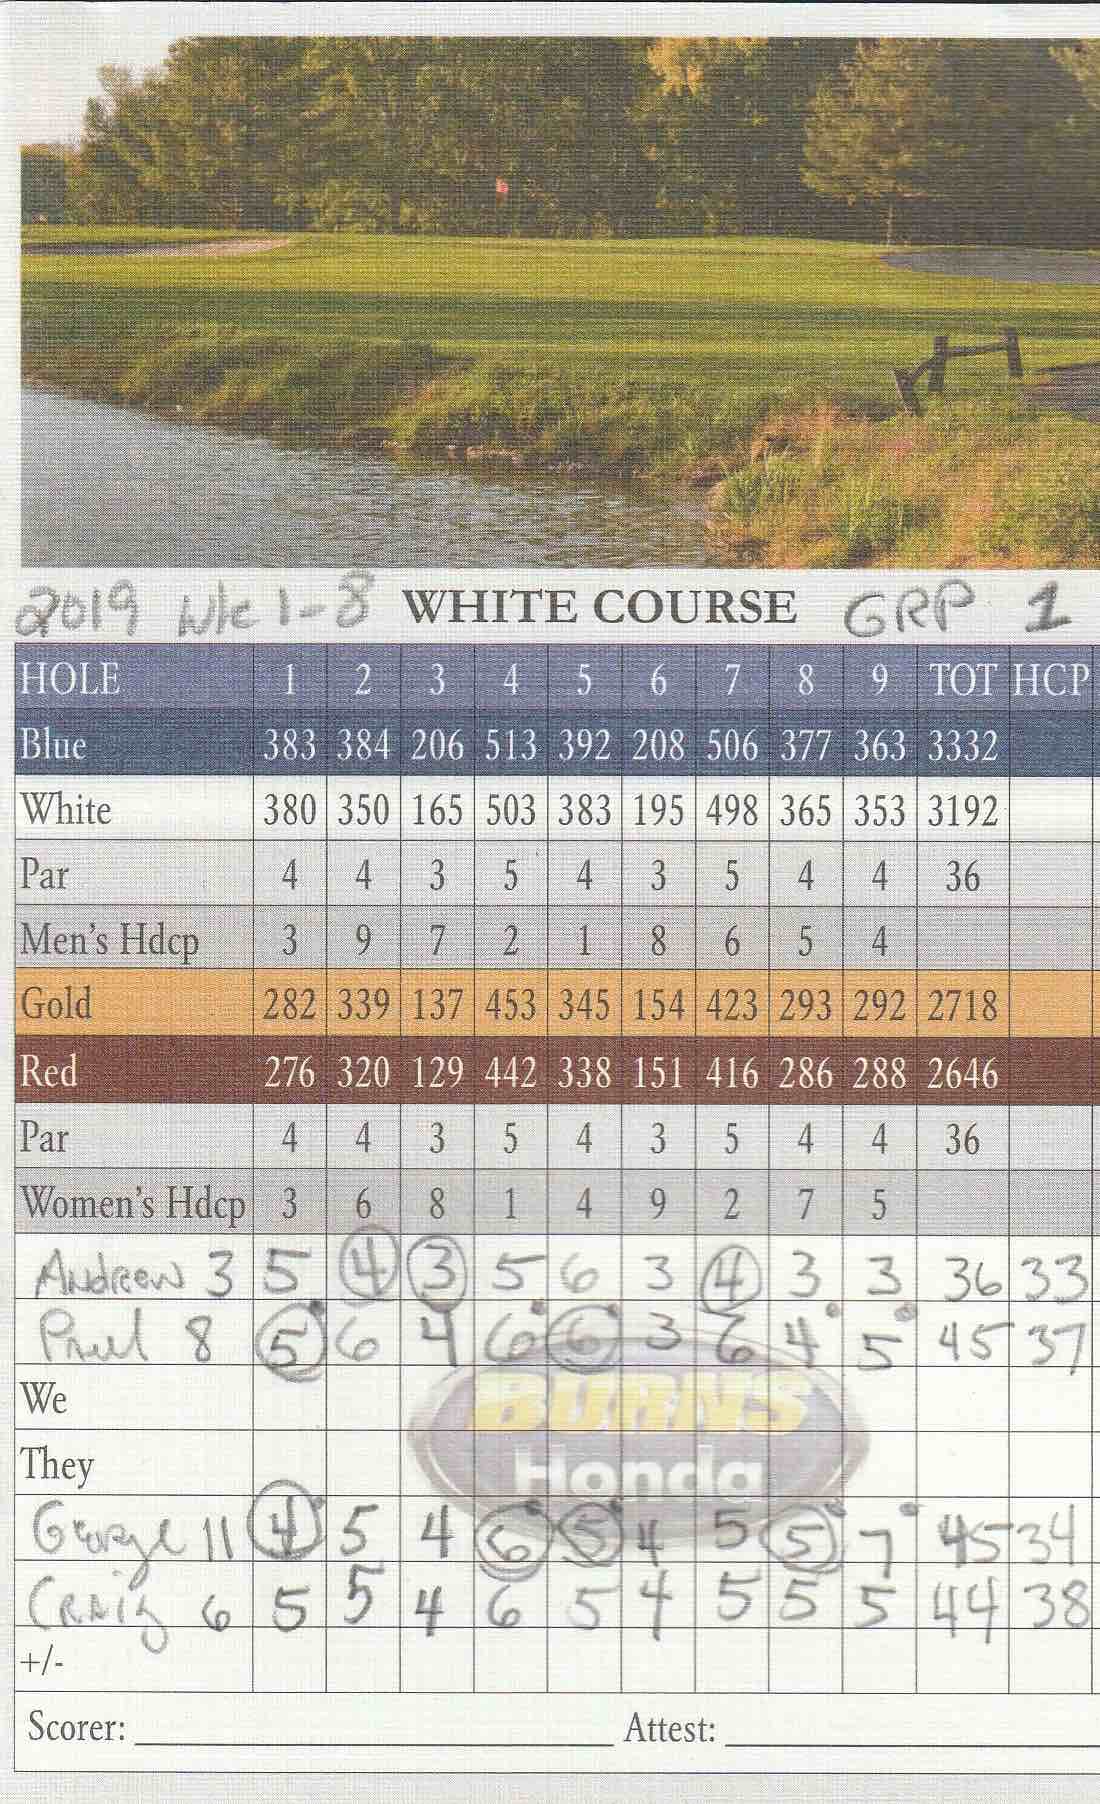 2019 Wk 1-8 WHITE COURSE GRP 1
HOLE 1 2 3 4 5 6 7 8 9 TOT HCP
Blue 383 384 206 513 392 208 506 377 363 3332
White 380 350 165 503 383 195 498 365 353 3192
Par 4 4 3 5 4 3 5 4 4 36
Men's Hdcp 3 9 7 2 1 8 6 5 4
Gold 282 339 137 453 345 154 423 293 292 2718
Red 276 320 129 442 338 151 416 286 288 2646
Par 4 4 3 5 4 3 5 4 4 36
Women's Hdcp 3 6 8 1 4 9 2 7 5
Andrew 3 5 4 3 5 6 3 4 3 3 36 33
8 5 6 4 6 6 3 6 4 5 45 37
We
BURNS
They
Honda
George 11 4 5 4 6 5 4 5 5 7 45 34
Craig 6 5 5 4 6 5 4 5 5 5 44 38
+/-
Scorer: Attest: